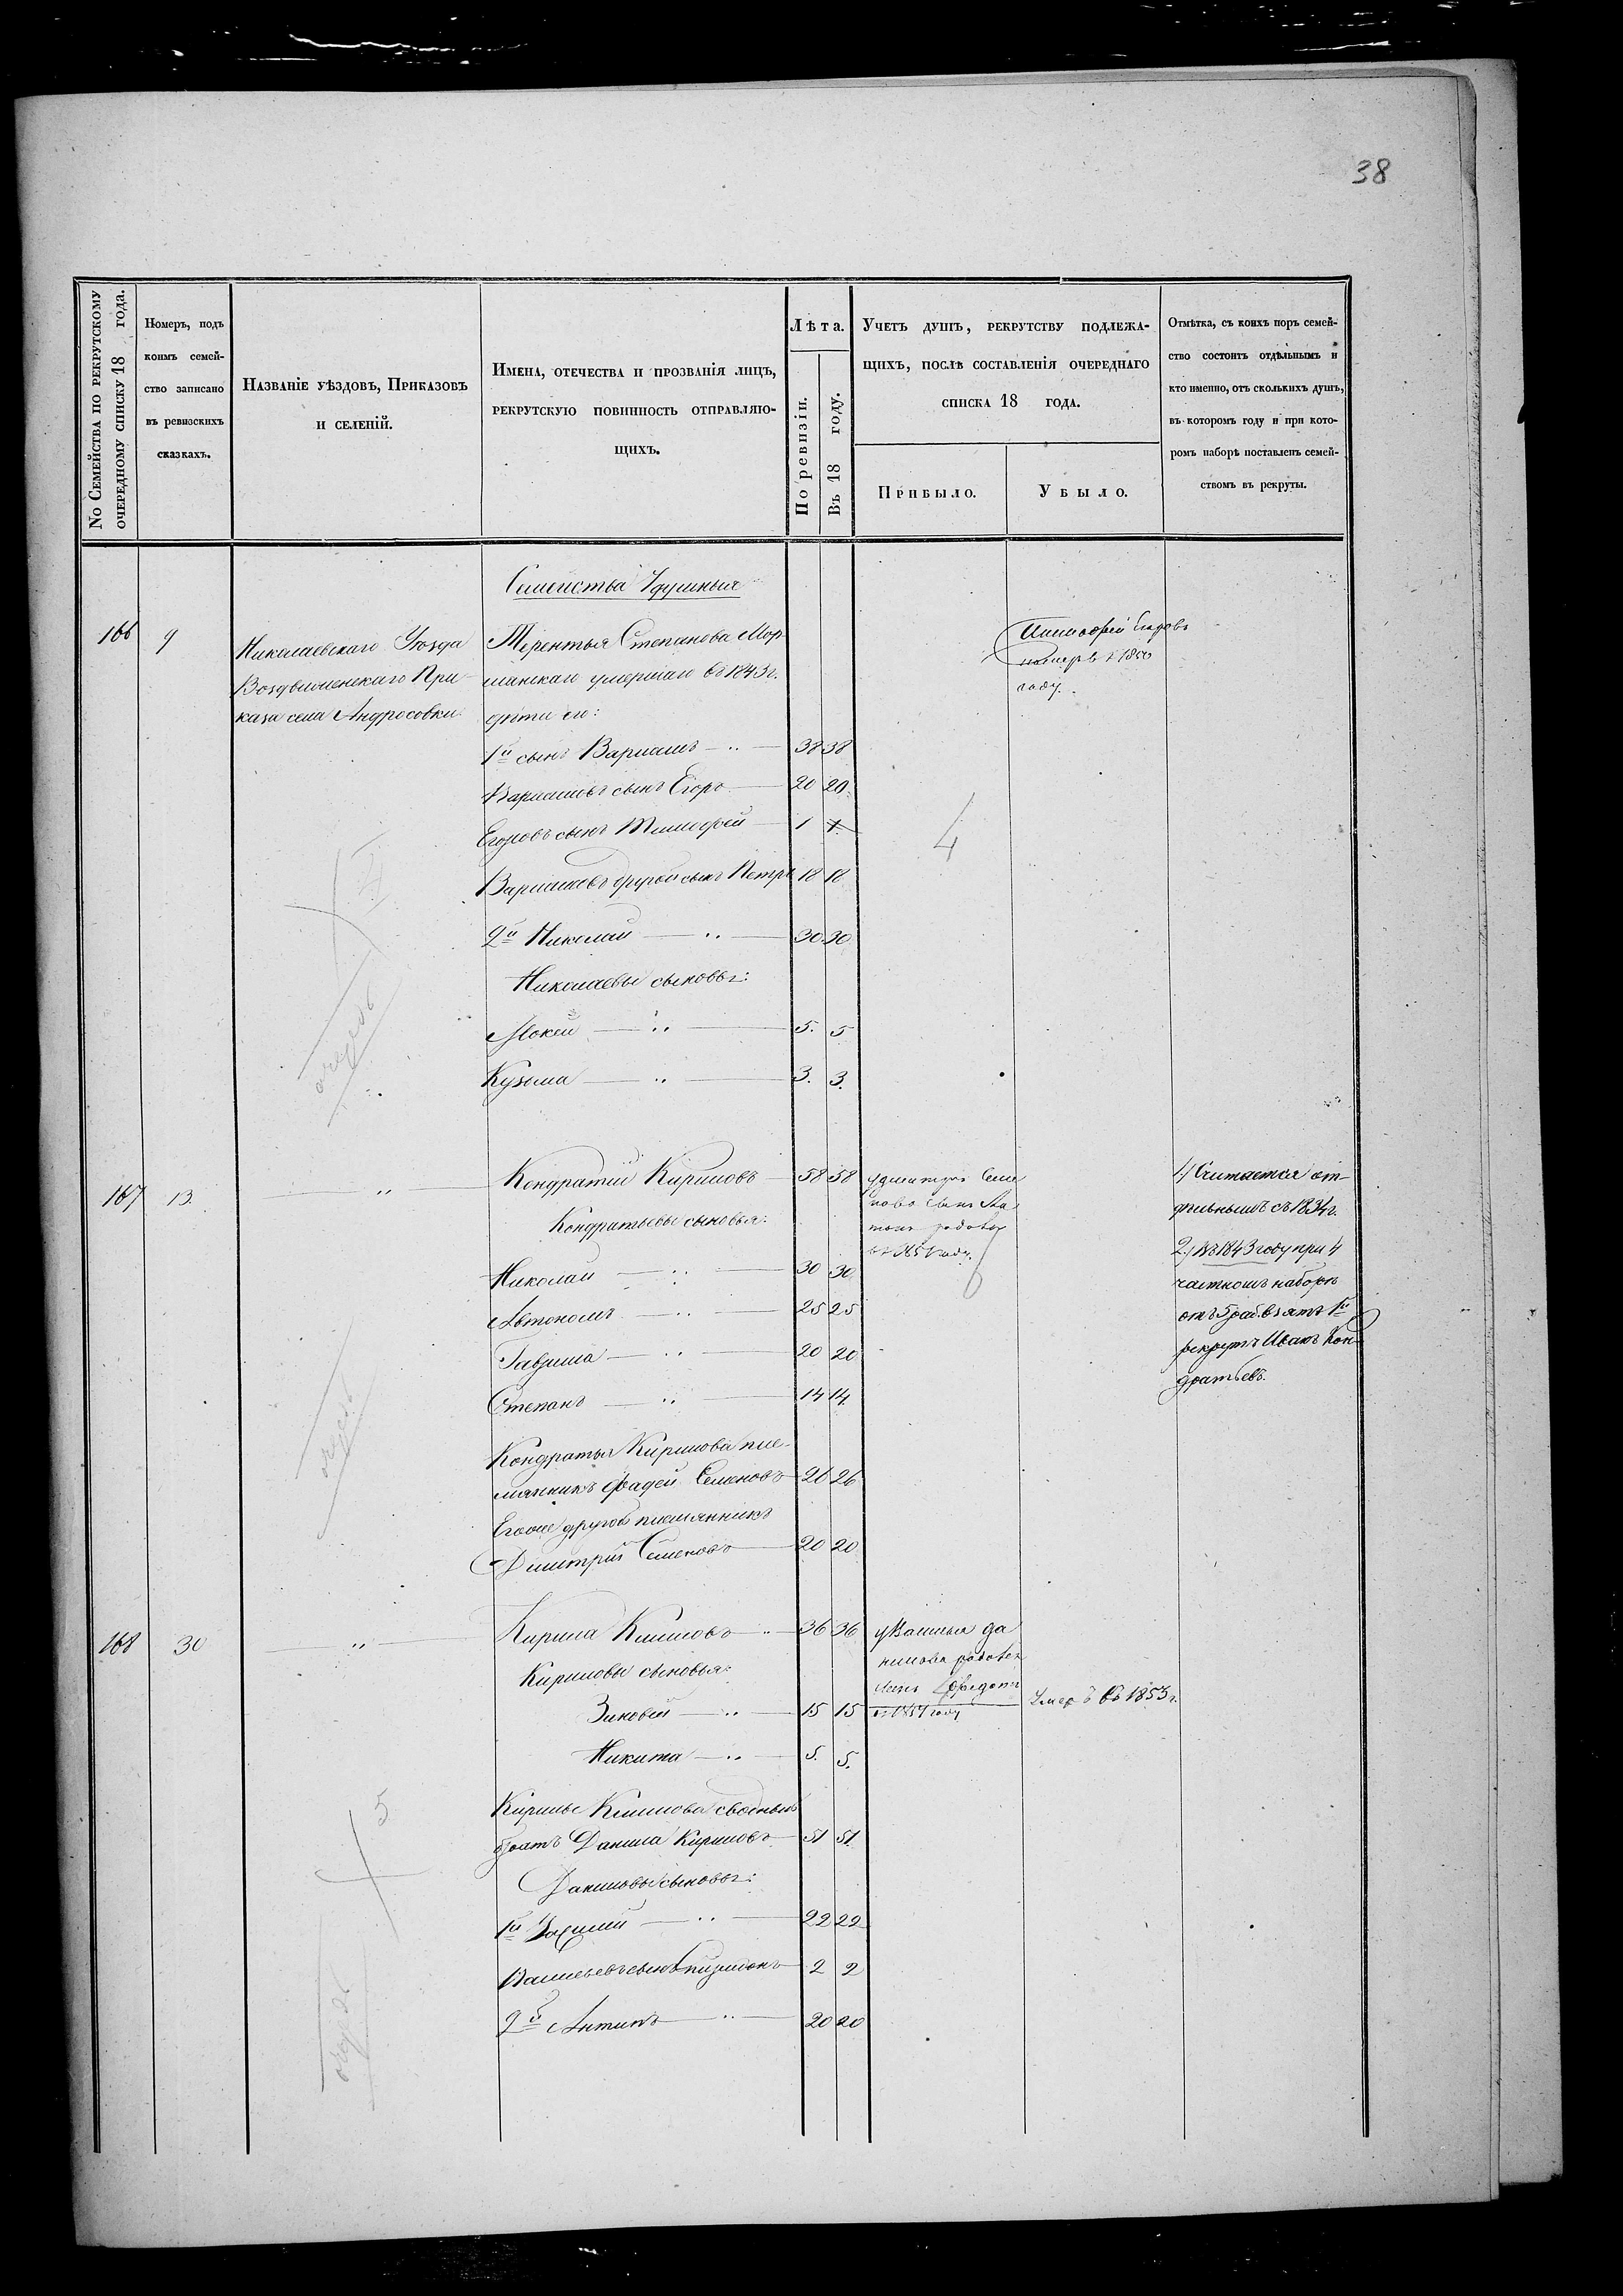 38
No Семейства по рекрутскому
очередному списку 18 года.
Номеръ, подъ
коимъ семей-
ство записано
въ ревизскихъ
сказкахъ.
Названіе уѣздовъ, Приказовъ
и селеній.
Имена, отечества и прозванія лицъ,
рекрутскую повинность отправляю-
щихъ.
Лѣта.
По ревизіи.
Въ 18 году.
Учетъ душъ, рекрутству подлежа-
щихъ, послѣ составленія очереднаго
списка 18 года.
Прибыло.
Убыло.
Отмѣтка, съ коихъ поръ семей-
ство состоитъ отдѣльнымъ и
кто именно, отъ сколькихъ душъ,
въ которомъ году и при кото-
ромъ наборѣ поставленъ семей-
ствомъ въ рекруты.
Семейства 7 душныя
166
9
Николаевскаго Уѣзда
Воздвиженскаго При-
каза села Андросовки
Терентья Степанова Мор-
шанскаго умершаго въ 1843 г.
дѣти его:
1й сынъ Варламъ 38 38
Варламовъ сынъ Егоръ 20 20
Егоровъ сынъ Тимофей 1 1
Варламовъ другой сынъ Петръ 18 18
2й Николай 30 30
Николаевы сыновья:
Мокей 5. 5
Кузьма 3. 3.
Тимофей
померъ в 1850
году.
4
очередь
167 13.
Кондратій Кириловъ 58 58
Кондратьевы сыновья:
Николай 30 30
Автономъ 25 25
Гаврила 20 20
Степанъ 14 14
Кондратья Кирилова пле-
мянникъ Фадей Семеновъ 26 26
Егоже другой племянникъ
Дмитрій Семеновъ 20 20
у Дмитрія Семе
нова сынъ
году.
1) Считается от-
дѣльнымъ съ 1834 г.
2) Въ 1843 году при 4
частномъ наборѣ
отъ взятъ 1й
рекрутъ Иванъ Кон-
дратьевъ.
очередь
168 30
Кирила Климовъ 36 36
Кириловы сыновья:
Зиновей 15 15
Никита 5. 5.
Кирилы Климова сводный
братъ Данила Кириловъ 51 51
Даниловы сыновья:
1й 22 22
Васильевъ сынъ Спиридонъ 2 2
2й Антипъ 20 20
у Василья Да
нилова родился
сынъ Федотъ
въ 1851 году
Умеръ въ 1853 г.
5
очередь